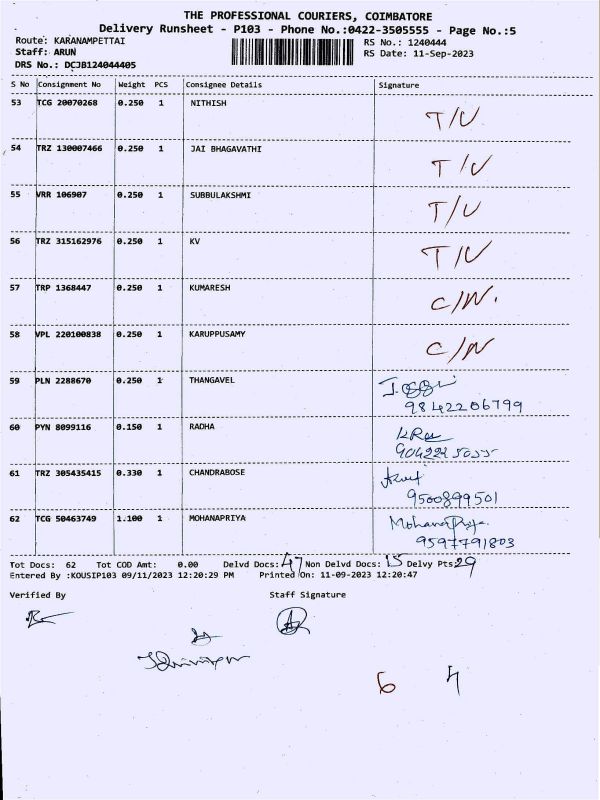 THE PROFESSIONAL COURIERS, COIMBATORE
Delivery Runsheet - P103 - Phone No.:0422-3505555 - Page No.:5
Route: KARANAMPETTAI
RS No.: 1240444
Staff: ARUN
RS Date: 11-Sep-2023
DRS No.: DCJB124044405
S No Consignment No Weight PCS Consignee Details Signature
53 TCG 20070268 0.250 1 NITHISH T/U
54 TRZ 130007466 0.250 1 JAI BHAGAVATHI T/U
55 VRR 106907 0.250 1 SUBBULAKSHMI T/U
56 TRZ 315162976 0.250 1 KV T/U
57 TRP 1368447 0.250 1 KUMARESH C/N.
58 VPL 220100838 0.250 1 KARUPPUSAMY C/N
59 PLN 2288670 0.250 1 THANGAVEL
9842206799
60 PYN 8099116 0.150 1 RADHA
61 TRZ 305435415 0.330 1 CHANDRABOSE
9500899501
62 TCG 50463749 1.100 1 MOHANAPRIYA MohanaPriya
9597791803
Tot Docs: 62 Tot COD Amt: 0.00 Delvd Docs: 47 Non Delvd Docs: 15 Delvy Pts: 29
Entered By :KOUSIP103 09/11/2023 12:20:29 PM Printed On: 11-09-2023 12:20:47
Verified By Staff Signature
6 4